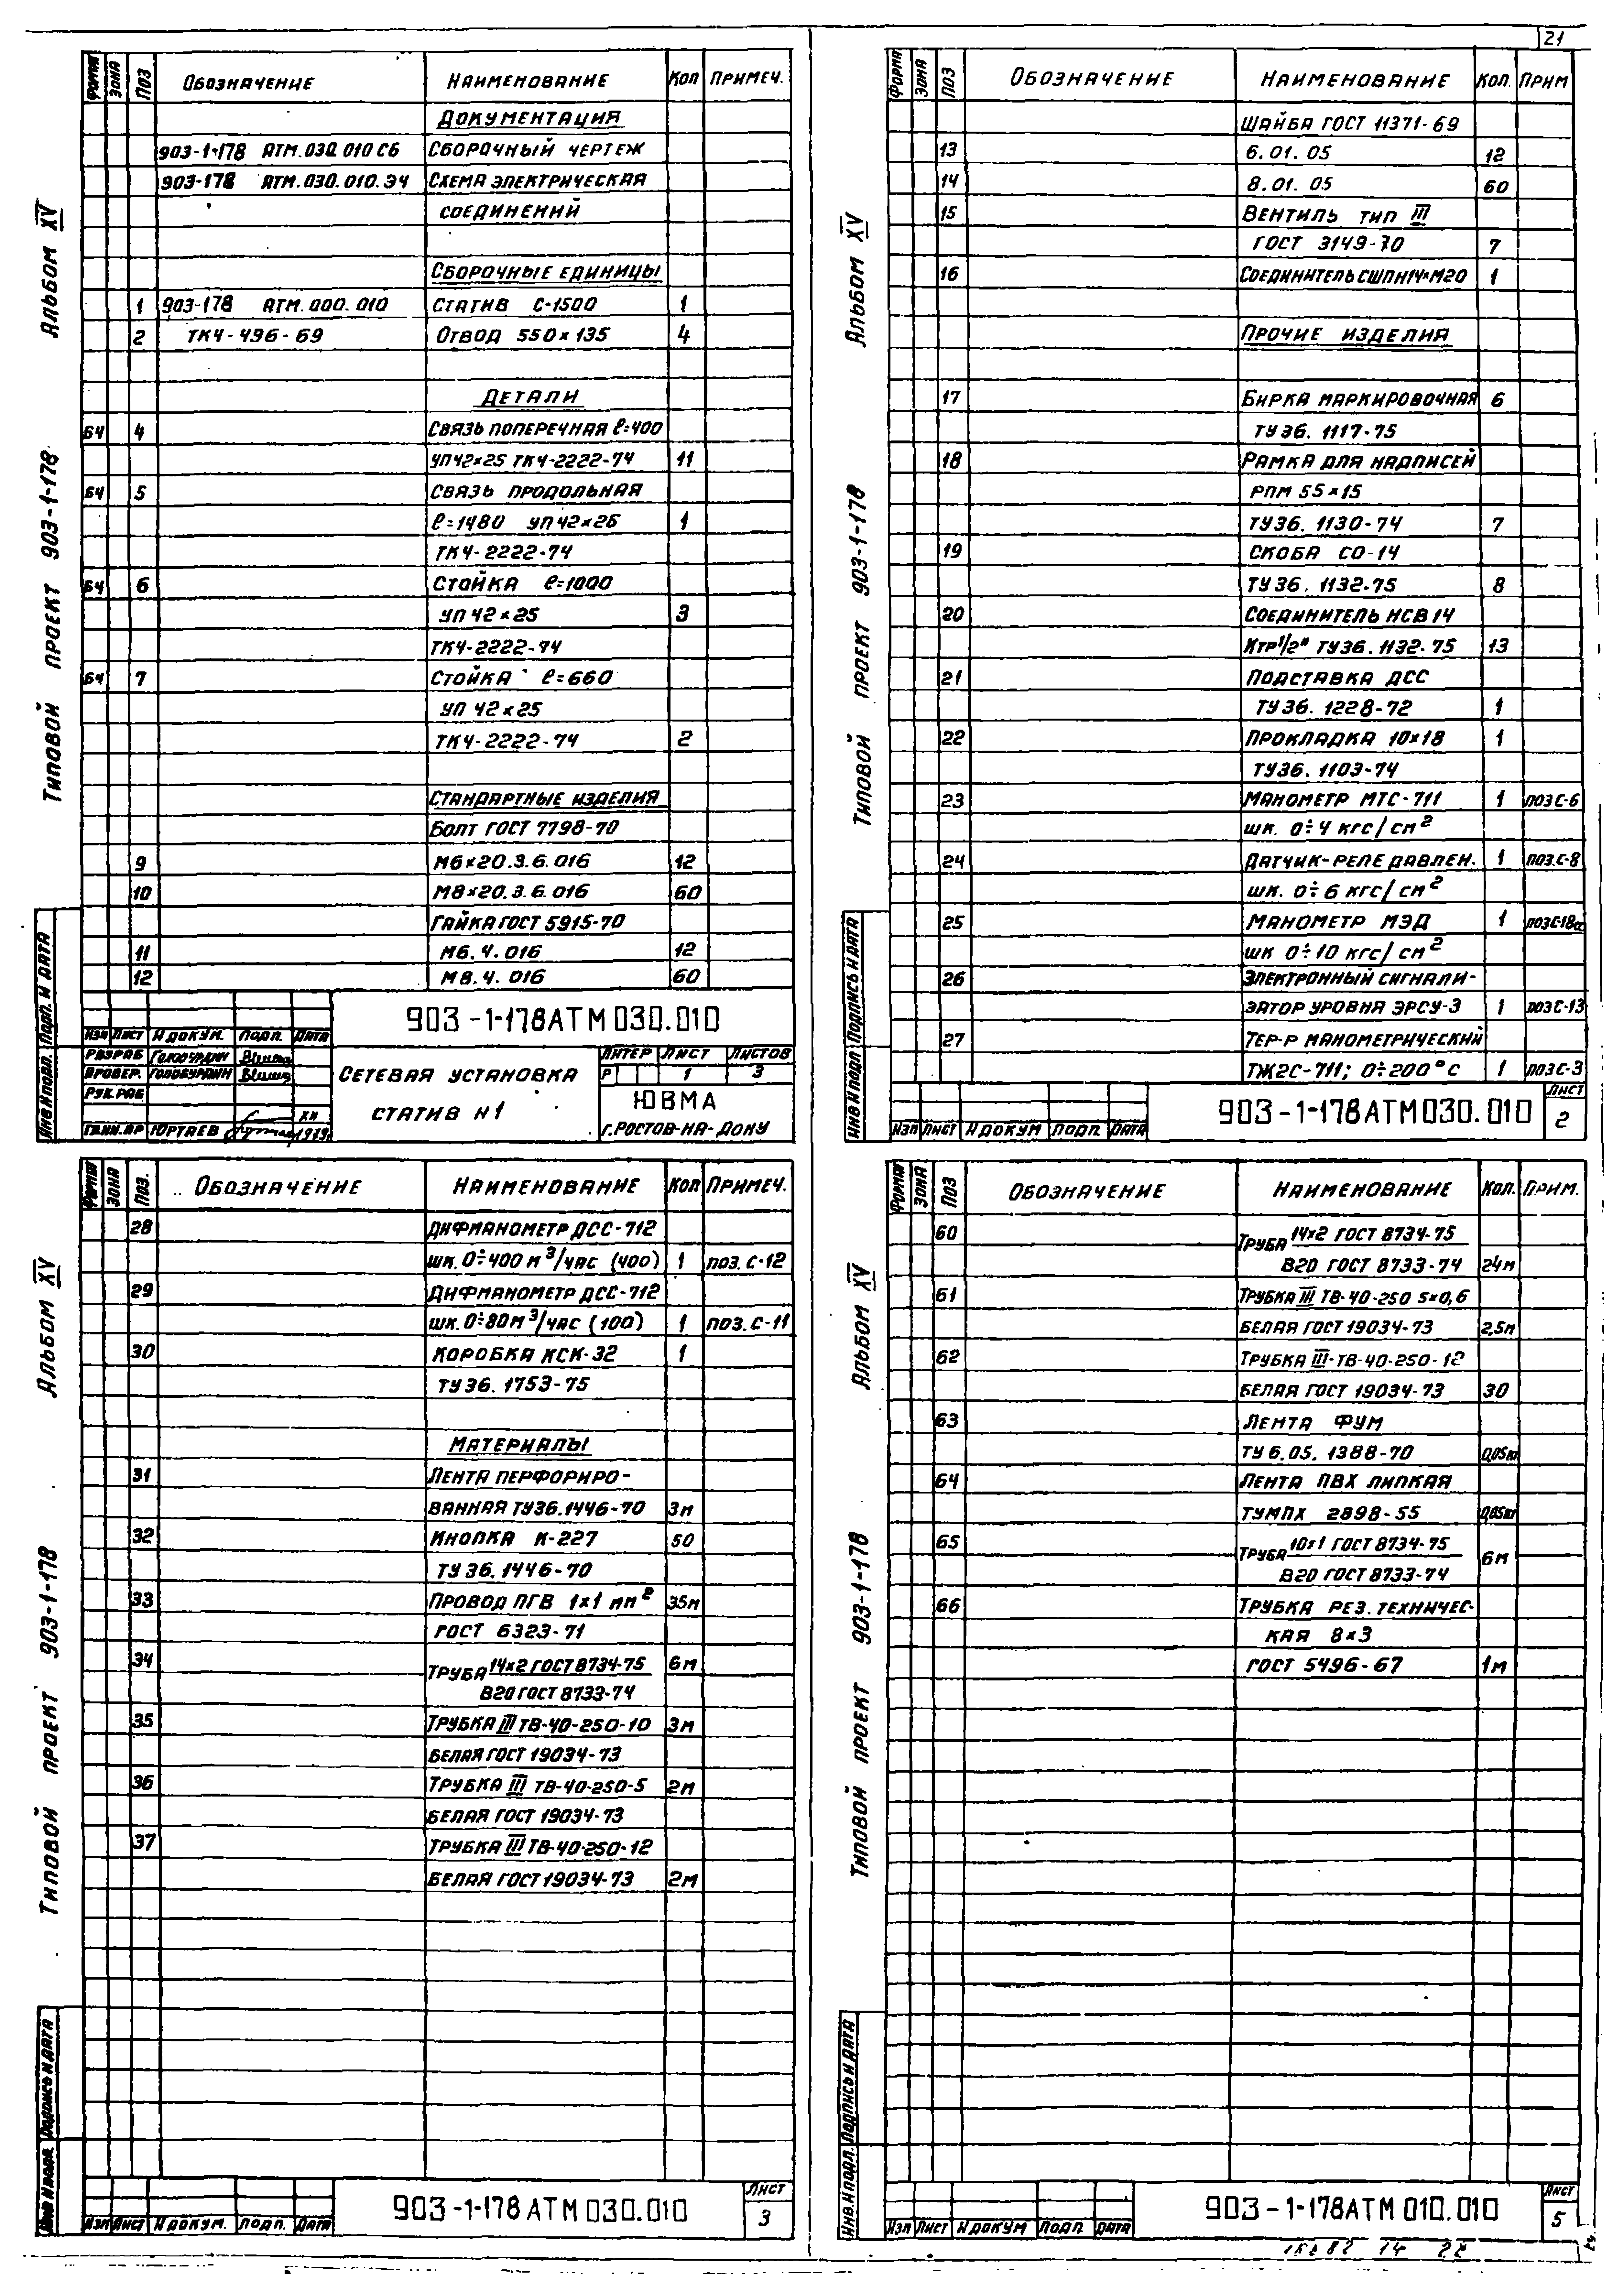 21
Альбом XV
Типовой проект 903-1-178
Формат Зона Поз Обозначение Наименование Кол Примеч.
Документация
903-1-178 АТМ.030.010 СБ Сборочный чертеж
903-178 АТМ.030.010.Э4 Схема электрическая
соединений
Сборочные единицы
1 903-178 АТМ.000.010 Статив С-1500 1
2 ТК4-496-69 Отвод 550×135 4
Детали
БЧ 4 Связь поперечная ℓ=400
УП42×25 ТК4-2222-74 11
БЧ 5 Связь продольная
ℓ=1480 УП 42×25 1
ТК4-2222-74
БЧ 6 Стойка ℓ=1000
УП 42×25 3
ТК4-2222-74
БЧ 7 Стойка ℓ=660
УП 42×25
ТК4-2222-74 2
Стандартные изделия
Болт ГОСТ 7798-70
9 М6×20.3.6.016 12
10 М8×20.3.6.016 60
Гайка ГОСТ 5915-70
11 М6.4.016 12
12 М8.4.016 60
903-1-178 АТМ 030.010
Изм Лист N докум. Подп. Дата
Разраб Голобурдин
Провер. Голобурдин
Рук.раб
Гл.ин.пр Юртаев XII 1979
Сетевая установка
статив N1
Литер Лист Листов
Р 1 3
ЮВМА
г.Ростов-на-Дону
Инв.N подл. Подп. и дата
Альбом XV
Типовой проект 903-1-178
Формат Зона Поз Обозначение Наименование Кол. Прим
Шайба ГОСТ 11371-69
13 6.01.05 12
14 8.01.05 60
15 Вентиль тип III
ГОСТ 3149-70 7
16 Соединитель СШПН14×М20 1
Прочие изделия
17 Бирка маркировочная 6
ТУ36.1117-75
18 Рамка для надписей
РПМ 55×15
ТУ36.1130-74 7
19 Скоба СО-14
ТУ36.1132-75 8
20 Соединитель НСВ14
Ктр 1/2" ТУ36.1132-75 13
21 Подставка ДСС
ТУ36.1228-72 1
22 Прокладка 10×18 1
ТУ36.1103-74
23 Манометр МТС-711 1 поз С-6
шк. 0÷4 кгс/см²
24 Датчик-реле давлен. 1 поз.С-8
шк. 0÷6 кгс/см²
25 Манометр МЭД 1 поз С-18а
шк 0÷10 кгс/см²
26 Электронный сигнали-
затор уровня ЭРСУ-3 1 поз С-13
27 Тер-р манометрический
ТЖ2С-711; 0÷200°С 1 поз С-3
Изм Лист N докум Подп. Дата
903-1-178 АТМ 030.010
Лист
2
Инв N подл Подпись и дата
Альбом XV
Типовой проект 903-1-178
Формат Зона Поз. Обозначение Наименование Кол Примеч.
28 Дифманометр ДСС-712
шк. 0÷400 м³/час (400) 1 поз. С-12
29 Дифманометр ДСС-712
шк. 0÷80 м³/час (100) 1 поз. С-11
30 Коробка КСК-32 1
ТУ36.1753-75
Материалы
31 Лента перфориро-
ванная ТУ36.1446-70 3м
32 Кнопка К-227 50
ТУ 36.1446-70
33 Провод ПГВ 1×1 мм² 35м
ГОСТ 6323-71
34 Труба 14×2 ГОСТ 8734-75 6м
В20 ГОСТ 8733-74
35 Трубка III ТВ-40-250-10 3м
белая ГОСТ 19034-73
36 Трубка III ТВ-40-250-5 2м
белая ГОСТ 19034-73
37 Трубка III ТВ-40-250-12
белая ГОСТ 19034-73 2м
Изм Лист N докум. Подп. Дата
903-1-178 АТМ 030.010
Лист
3
Инв N подл. Подпись и дата
Альбом XV
Типовой проект 903-1-178
Формат Зона Поз Обозначение Наименование Кол. Прим.
60 Труба 14×2 ГОСТ 8734-75
В20 ГОСТ 8733-74 24м
61 Трубка III ТВ-40-250 5×0,6
белая ГОСТ 19034-73 2,5м
62 Трубка III-ТВ-40-250-12
белая ГОСТ 19034-73 30
63 Лента ФУМ
ТУ 6.05.1388-70 0,05кг
64 Лента ПВХ липкая
ТУМПХ 2898-55 0,05кг
65 Труба 10×1 ГОСТ 8734-75 6м
В20 ГОСТ 8733-74
66 Трубка рез. техничес-
кая 8×3
ГОСТ 5496-67 1м
Изм Лист N докум Подп. Дата
903-1-178 АТМ 010.010
Лист
5
Инв.N подл. Подпись и дата